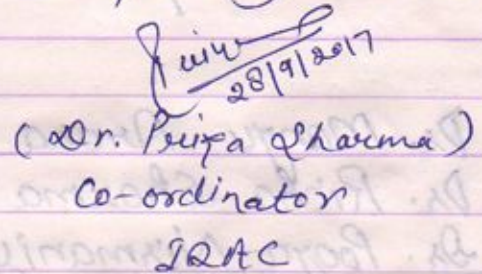 Priya
28/9/2017
(Dr. Priya Sharma)
Co-ordinator
IQAC